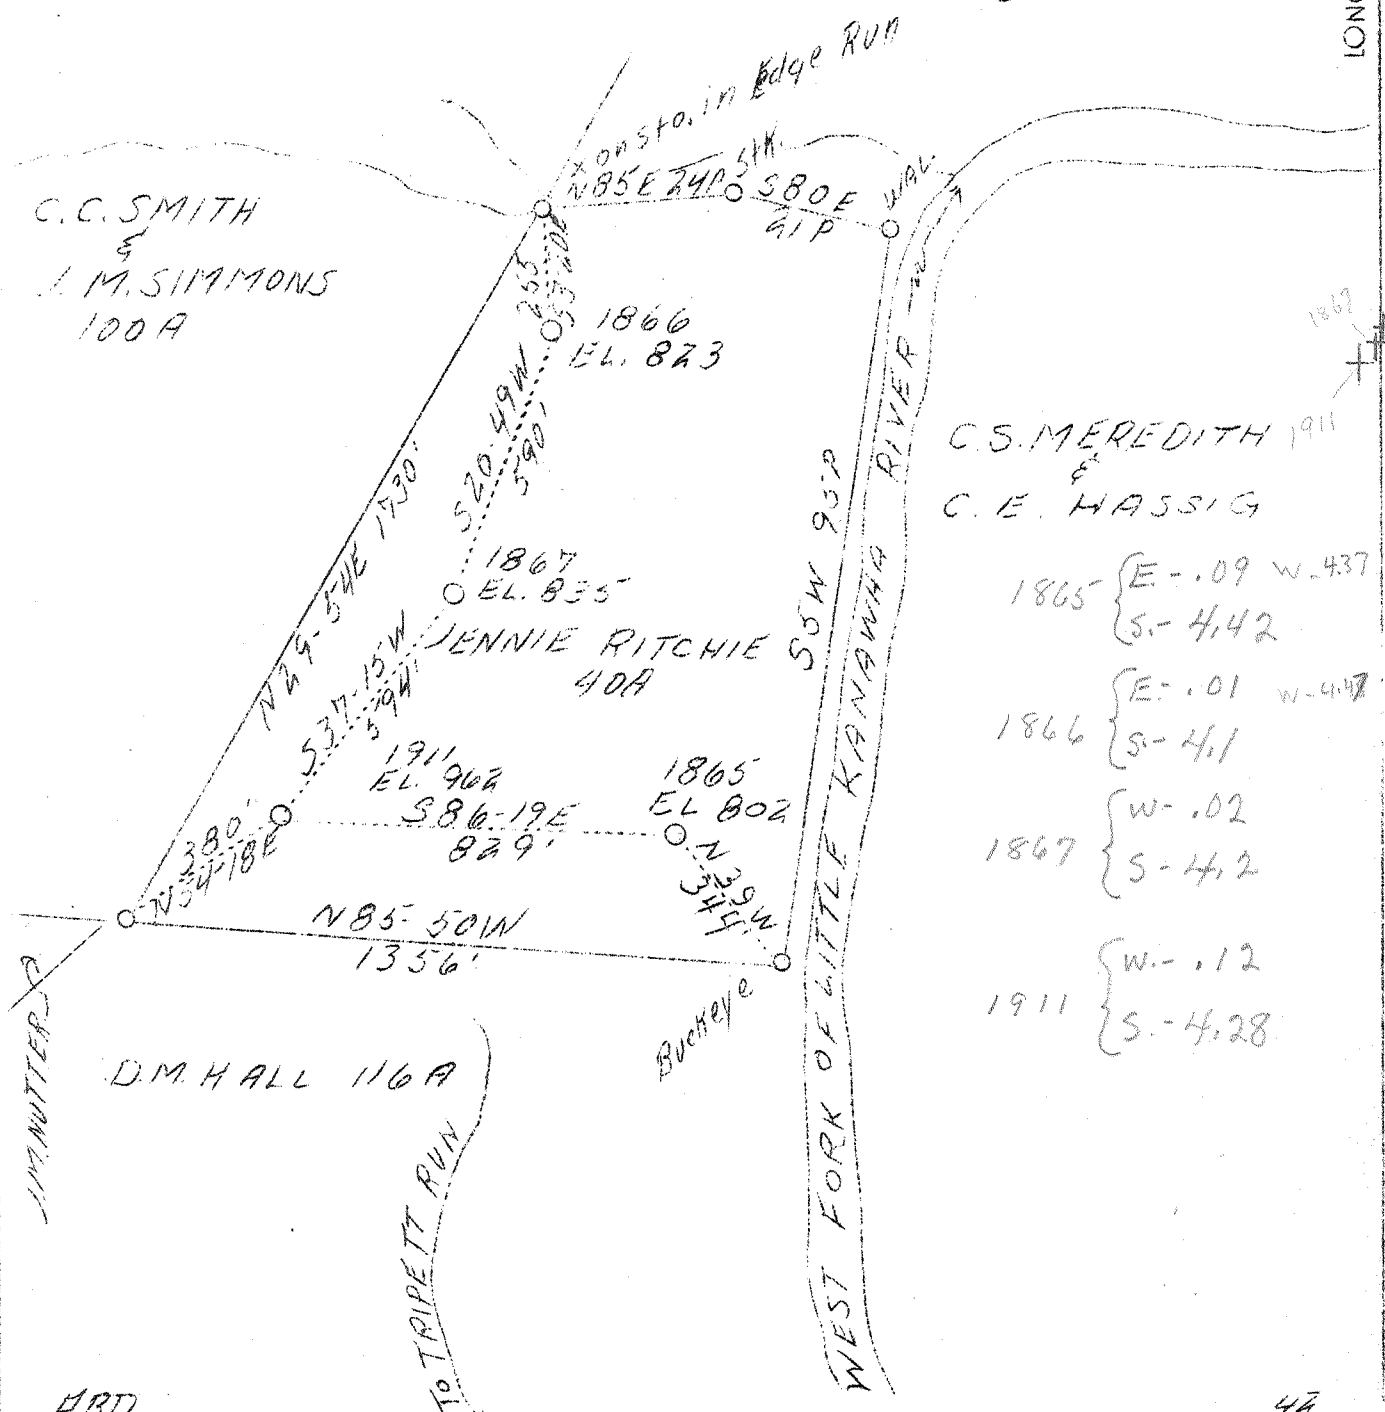 x on sto. in Edge Run
N85E 24P
Stk.
S80E
21P
WAL.
C.C. SMITH
&
J. M. SIMMONS
100 A
255
1866
EL. 823
S20-49W
590'
1867
EL. 835
N29-54E 1730'
S37-15W
594'
JENNIE RITCHIE
40A
S5W 95P
1911
EL. 962
S86-19E
829'
1865
EL 802
N39W
344
380'
N54-18E
N85-50W
1356'
Buckeye
J.M. NUTTER
D.M. HALL 116 A
To TRIPETT RUN
WEST FORK OF LITTLE KANAWHA RIVER
C.S. MEREDITH
&
C. E. HASSIG
1911
1865 E-.09 W-4.37
S.-4.42
1866 E-.01
S.-4.1
1867 W-.02
S-4.2
1911 W.-.12
S.-4.28